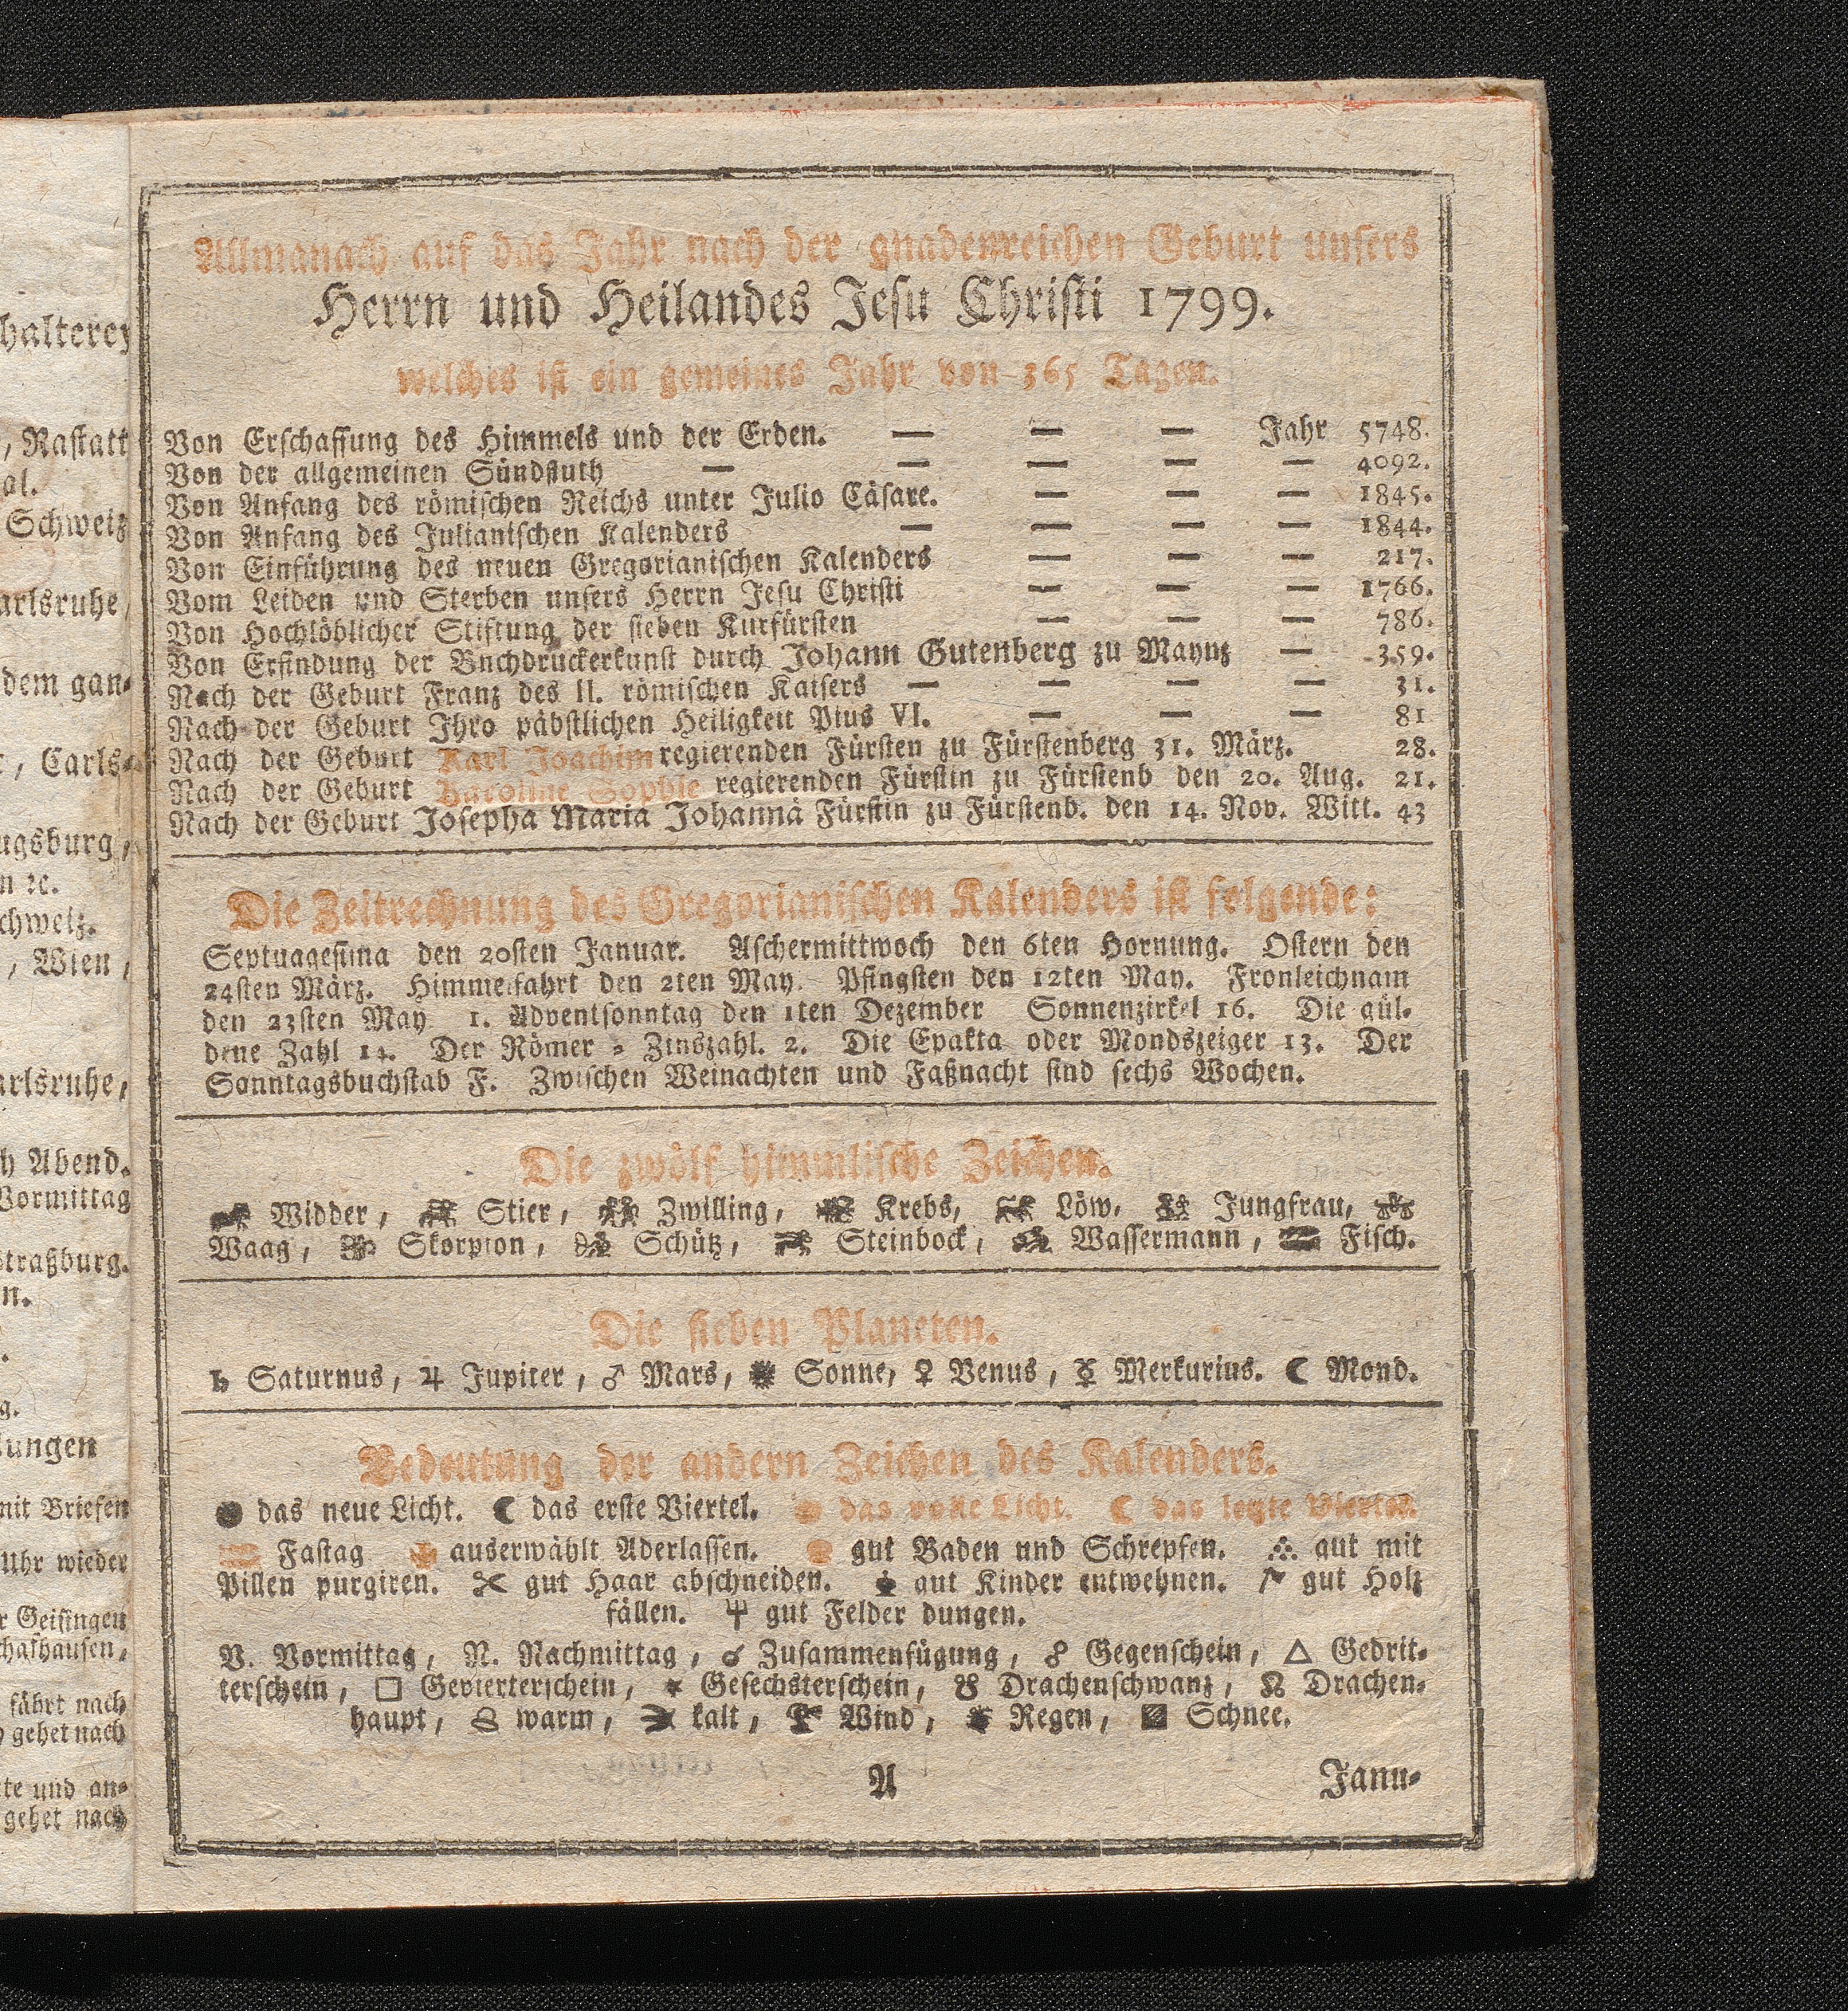 halterey
, Rastatt
al.
Schweiz
arlsruhe,
dem gan-
, Carls-
ugsburg,
n ꝛc.
chweiz.
, Wien,
arlsruhe,
h Abend.
Vormittag
traßburg.
n.
g.
lungen
mit Briefen
Uhr wieder
r Geisingen
chafhausen,
fährt nach
gehet nach
te und an-
gehet nach
Allmanach auf das Jahr nach der gnadenreichen Geburt unsers
Herrn und Heilandes Jesu Christi 1799.
welches ist ein gemeines Jahr von 365 Tagen.
Von Erschaffung des Himmels und der Erden. — — — Jahr 5748.
Von der allgemeinen Sündfluth — — — — — 4092.
Von Anfang des römischen Reichs unter Julio Cäsare. — — — 1845.
Von Anfang des Julianischen Kalenders — — — — 1844.
Von Einführung des neuen Gregorianischen Kalenders — — — 217.
Vom Leiden und Sterben unsers Herrn Jesu Christi — — — 1766.
Von Hochlöblicher Stiftung der sieben Kurfürsten — — — 786.
Von Erfindung der Buchdruckerkunst durch Johann Gutenberg zu Maynz — 359.
Nach der Geburt Franz des II. römischen Kaisers — — — — 31.
Nach der Geburt Ihro päbstlichen Heiligkeit Pius VI. — — — 81
Nach der Geburt Karl Joachim regierenden Fürsten zu Fürstenberg 31. März. 28.
Nach der Geburt Karoline Sophie regierenden Fürstin zu Fürstenb den 20. Aug. 21.
Nach der Geburt Josepha Maria Johannä Fürstin zu Fürstenb. den 14. Nov. Witt. 43
Die Zeitrechnung des Gregorianischen Kalenders ist folgende:
Septuagesima den 20sten Januar. Aschermittwoch den 6ten Hornung. Ostern den
24sten März. Himmelfahrt den 2ten May. Pfingsten den 12ten May. Fronleichnam
den 23sten May 1. Adventsonntag den 1ten Dezember Sonnenzirkel 16. Die gül-
dene Zahl 14. Der Römer = Zinszahl. 2. Die Epakta oder Mondszeiger 13. Der
Sonntagsbuchstab F. Zwischen Weinachten und Faßnacht sind sechs Wochen.
Die zwölf himmlische Zeichen.
♈ Widder, ♉ Stier, ♊ Zwilling, ♋ Krebs, ♌ Löw, ♍ Jungfrau, ♎
Waag, ♏ Skorpion, ♐ Schütz, ♑ Steinbock, ♒ Wassermann, ♓ Fisch.
Die sieben Planeten.
♄ Saturnus, ♃ Jupiter, ♂ Mars, ☀ Sonne, ♀ Venus, ☿ Merkurius. ☾ Mond.
Bedeutung der andern Zeichen des Kalenders.
● das neue Licht. ☾ das erste Viertel. das volle Licht. ☾ das letzte Viertel.
Fastag auserwählt Aderlassen. gut Baden und Schrepfen. gut mit
Pillen purgiren. ✂ gut Haar abschneiden. gut Kinder entwehnen. gut Holz
fällen. gut Felder dungen.
V. Vormittag, N. Nachmittag, ☌ Zusammenfügung, ☍ Gegenschein, △ Gedrit-
terschein, □ Gevierterschein, ✶ Gesechsterschein, ☋ Drachenschwanz, ☊ Drachen-
haupt, warm, kalt, Wind, Regen, Schnee.
A Janu-